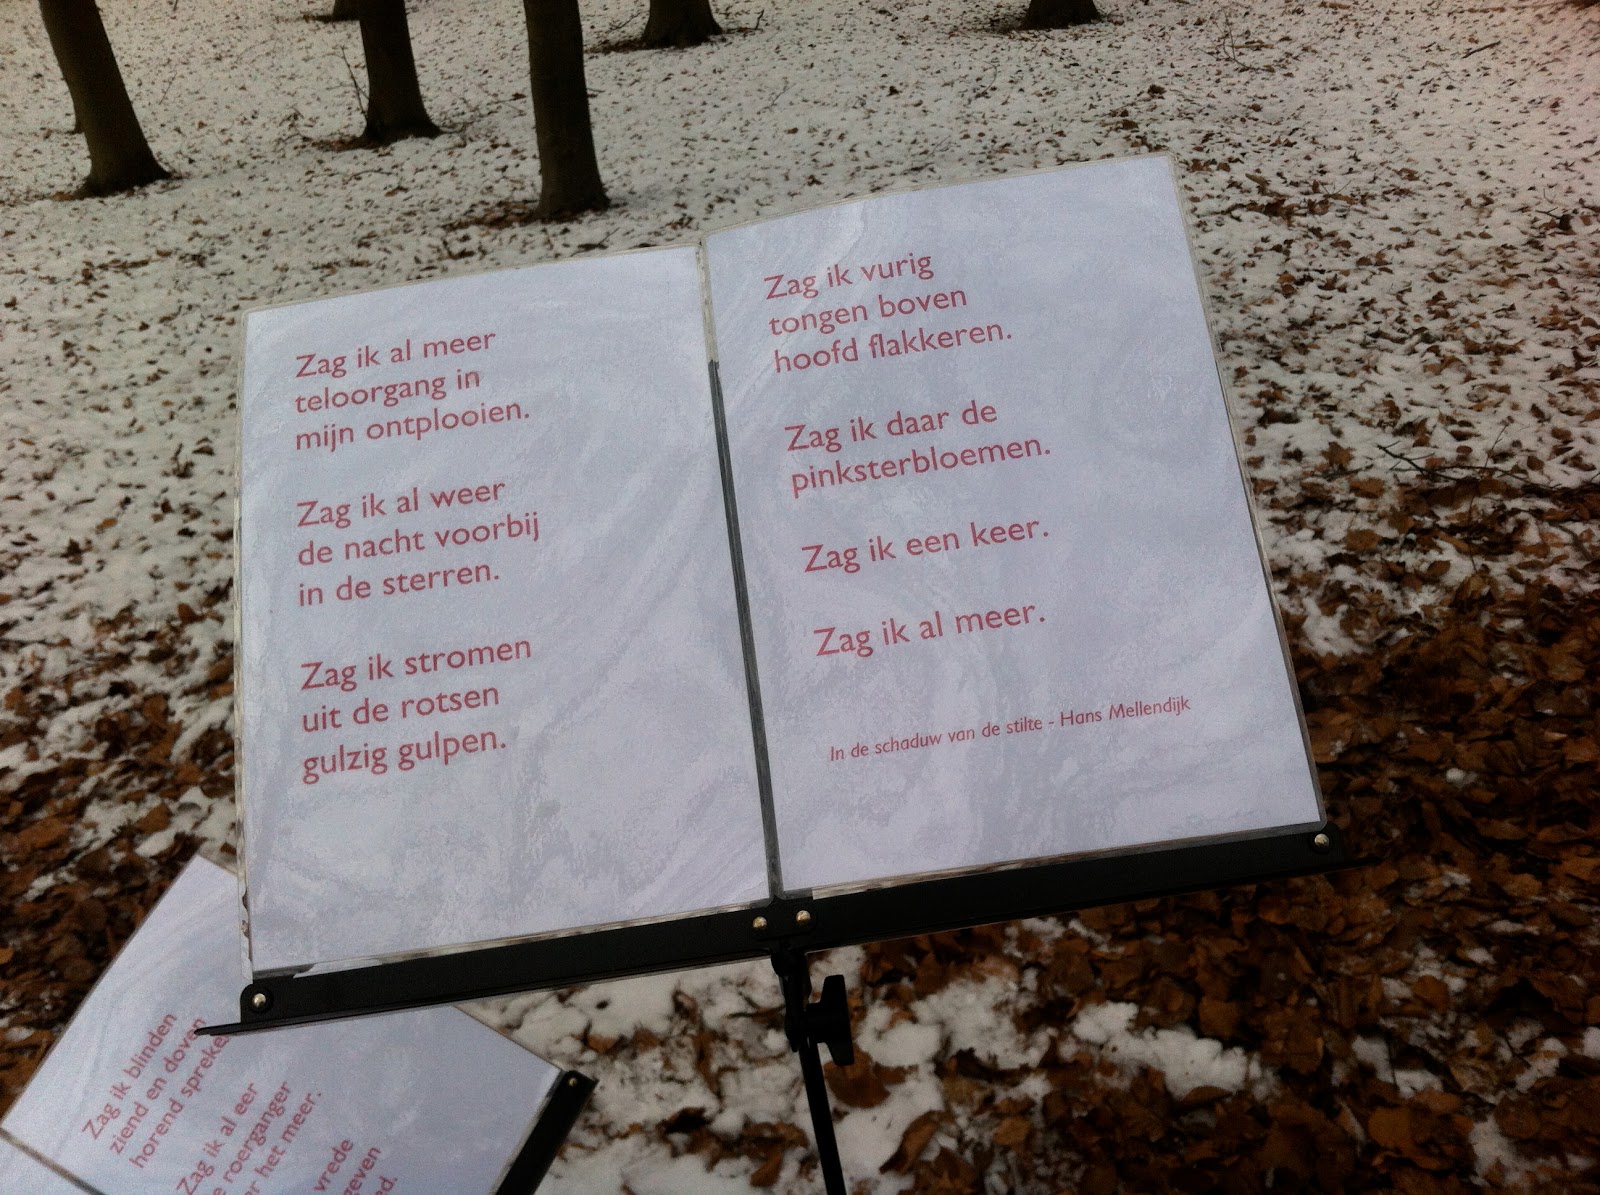 Zag ik al meer
teloorgang in
mijn ontplooien.
Zag ik al weer
de nacht voorbij
in de sterren.
Zag ik stromen
uit de rotsen
gulzig gulpen.
Zag ik vurig
tongen boven
hoofd flakkeren.
Zag ik daar de
pinksterbloemen.
Zag ik een keer.
Zag ik al meer.
In de schaduw van de stilte - Hans Mellendijk
Zag ik blinden
ziend en doven
horend
Zag ik al eer
roerganger
het meer.
vrede